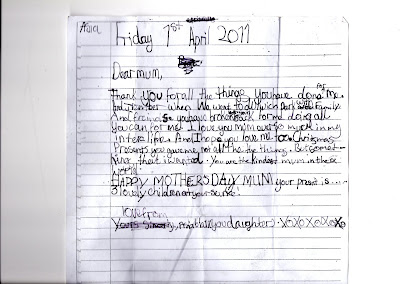 Friday 1st April 2011
Dear mum,
Thank you for all the things you have done for me.
And remember when We went to dulwich Park with Family
And for me you have broken back for me doing all
you can for me! I love you mum ever so much in my
inter life. And I hope you love me too. Christmas
Presents you gave me not all the things. But some
that i wanted. You are the kindest mum in these
world.
HAPPY MOTHERS DAY MUM your present is...
5 lovely children at your service!
love from
Yours Sincerly, (your daughter). XOXOXOXOXO